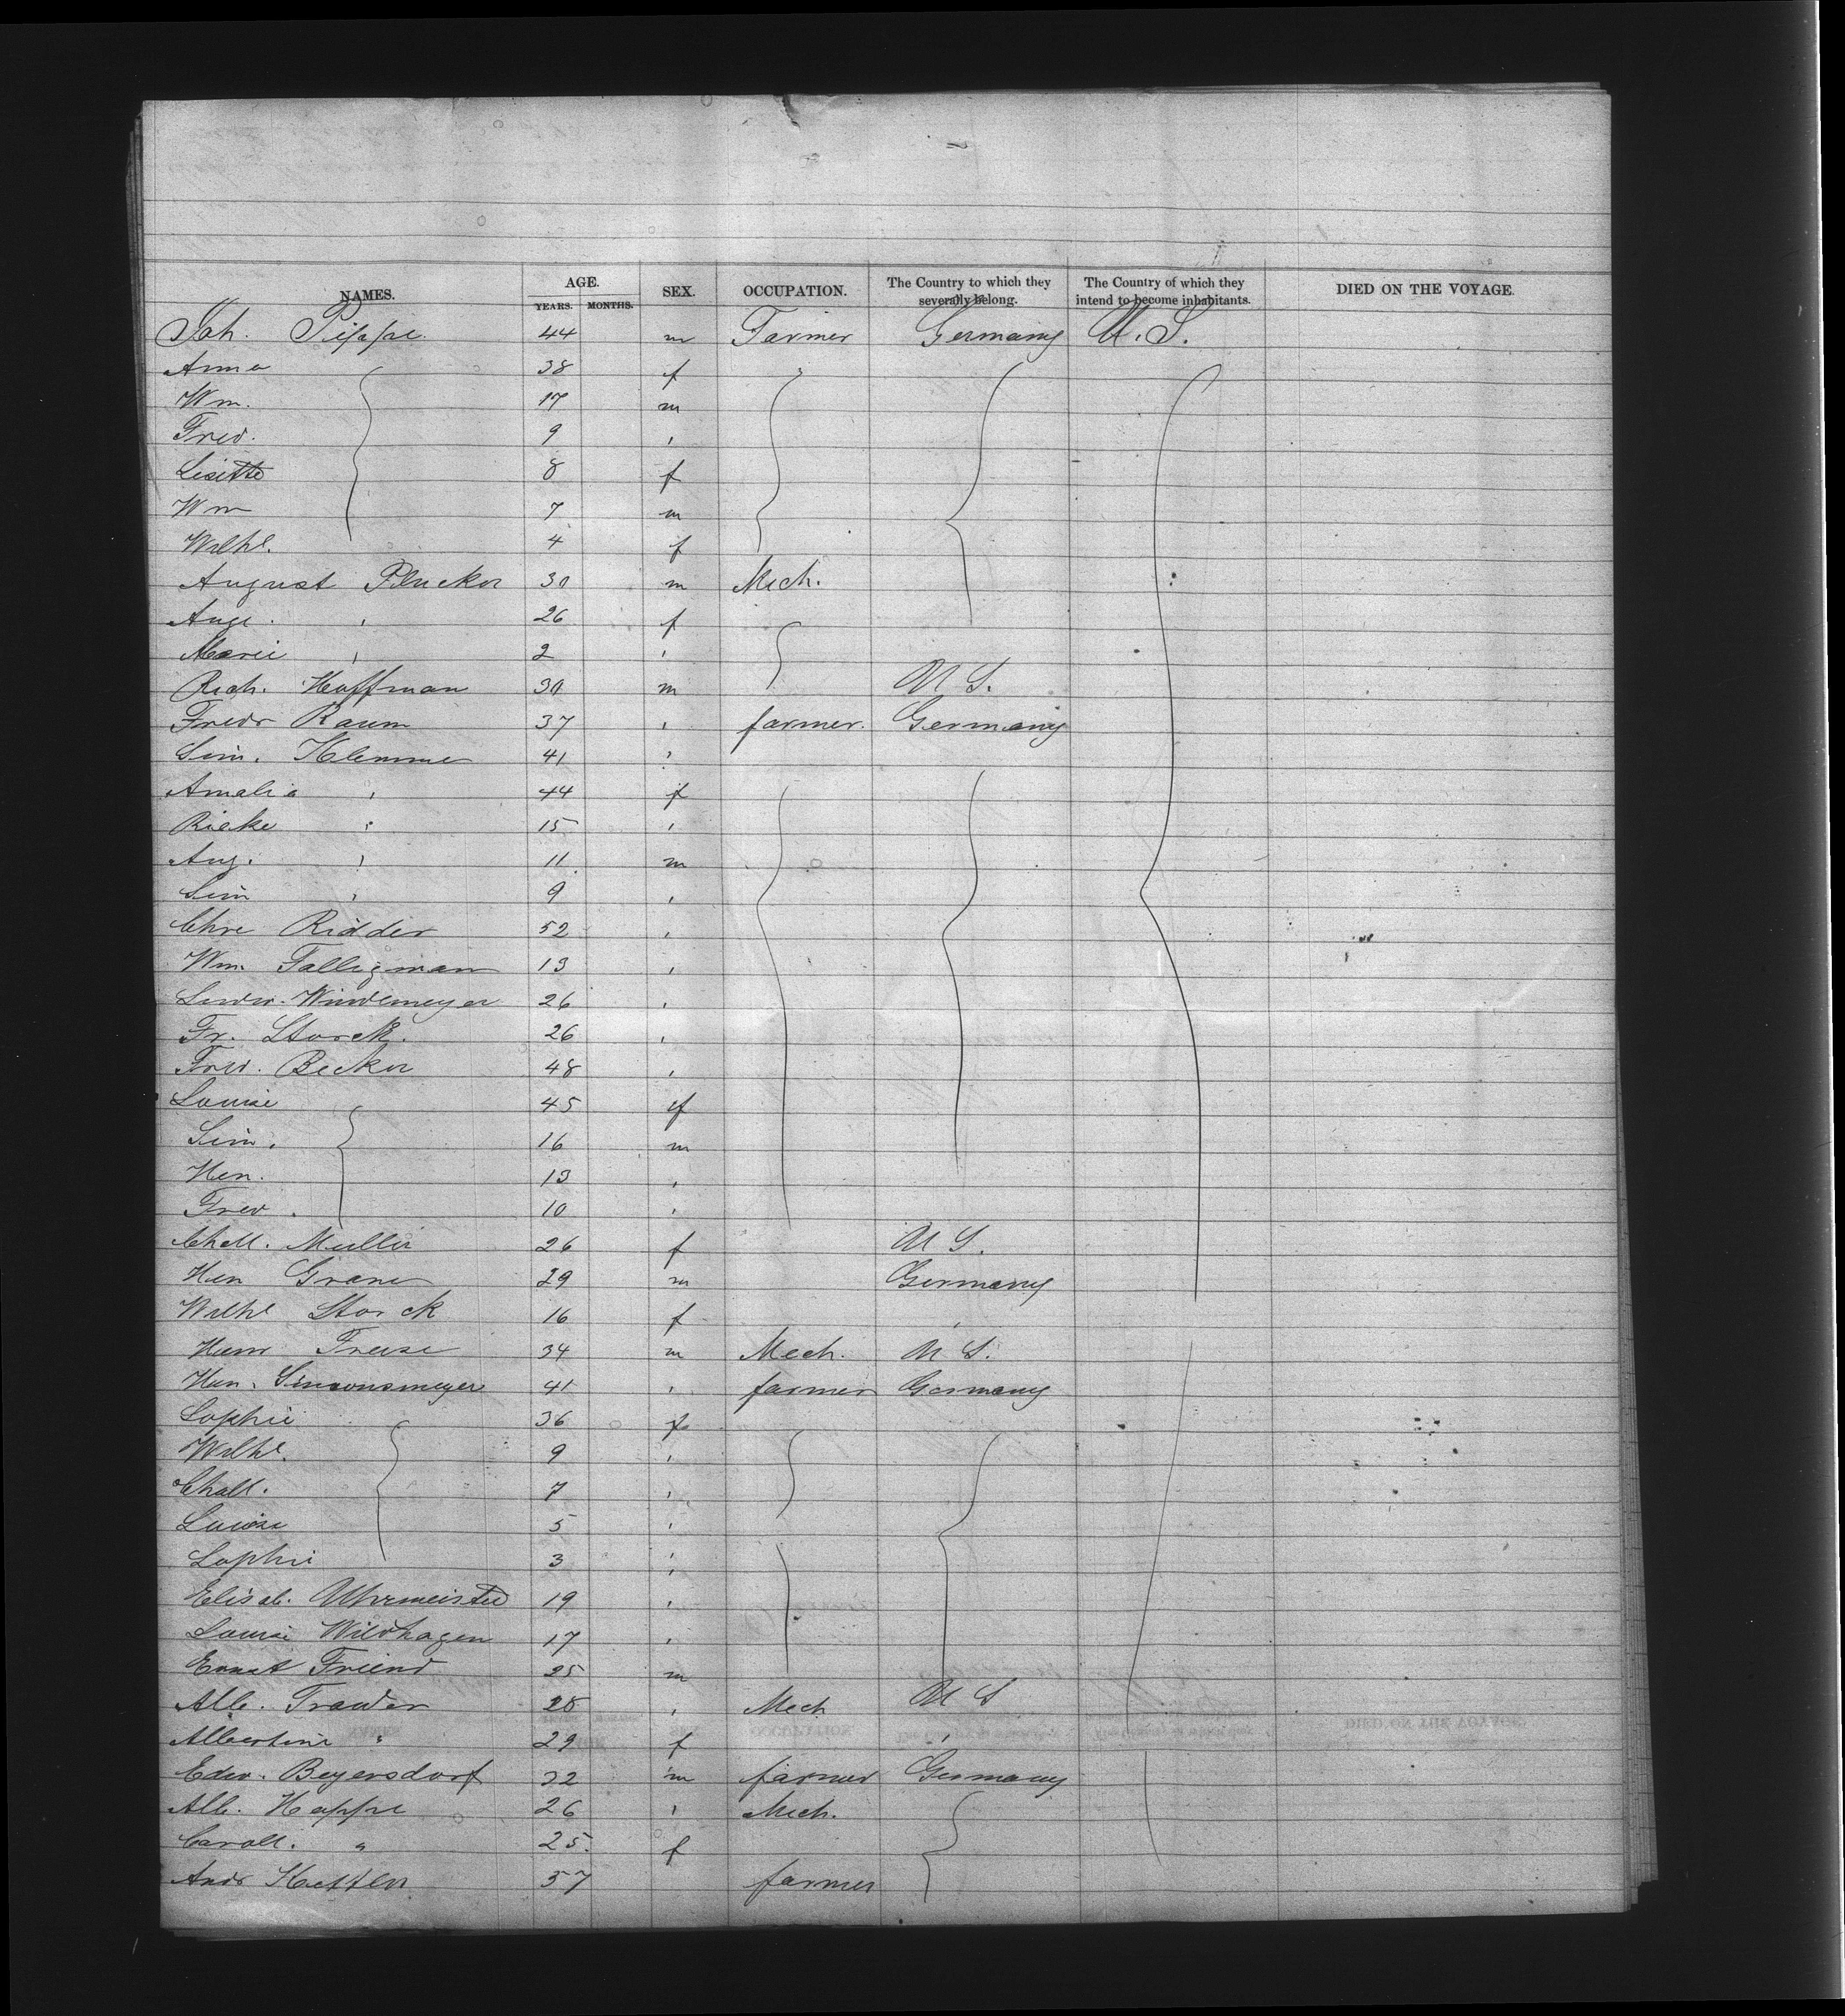 NAMES. AGE. YEARS. MONTHS. SEX. OCCUPATION. The Country to which they severally belong. The Country of which they intend to become inhabitants. DIED ON THE VOYAGE
Joh. Pippe. 44 m Farmer Germany U.S.
Anna 38 f
Wm. 17 m
Fred. 9 '
Lisette 8 f
Wm 7 m
Wilhe. 4 f
August Plucker 30 m Mech.
Auge. ' 26 f
Marie ' 2 '
Rich. Hoffman 30 m U S.
Fredr Raum 37 ' farmer. Germany
Sim. Klemme 41 '
Amalia ' 44 f
Rieke ' 15 '
Aug. ' 11 m
Sim ' 9 '
Chre Ridder 52 '
Wm. Falligman 13 '
Ludw. Windemeyer 26 '
Fr. Storck. 26 '
Fred. Becker 48 '
Louise 45 f
Sim. 16 m
Hen. 13 '
Fred. 10 '
Chall. Muller 26 f U S.
Hen Grane 29 m Germany
Wilhe Storck 16 f '
Henr Freise 34 m Mech. U S.
Hen. Simonsmeyer 41 ' farmer Germany
Sophie 36 f
Wilhe. 9 '
Chall. 7 '
Louise 5 '
Sophie 3 '
Elisab. Uhrmeister 19 '
Louise Wildhagen 17 '
Ernst Friend 25 m
Alb. Trawder 28 ' Mech U S
Albertine " 29 f '
Edw. Beyersdorf 32 m farmer Germany
Alb. Happe 26 ' Mech.
Caroll. " 25. f
Andr 57 farmer